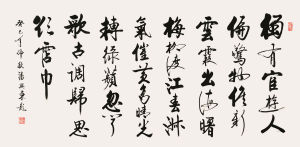 獨有宦遊人
偏驚物候新
雲霞出海曙
梅柳渡江春淑
氣催黄鳥晴光
轉綠蘋忽聞
歌古調歸思
欲霑巾